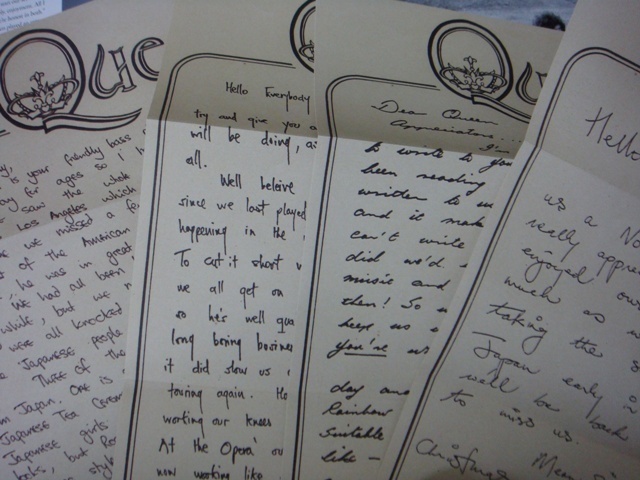 Que
y is your friendly bass
for ages so I
saw the
Los Angeles which
we missed a fe
of the American
he was in great
We had all been
while, but we
were all knocked
Japanese people
Three of the
Japan. One is
Japanese Tea
Japanese girls
but
style
Hello Everybody
try and give you a
will be doing, a
all.
Well beleive
since we last played
happening in the
To cut it short
we all get on
so he's well qua
long boring busines
it did slow us
touring again. He
working our knees
At the Opera' ou
now working like
Qu
Dear Queen
Appreciators...
I'm
to write to you
been reading
written to us
and it make
can't write
did we'd
music and
then! So
keep us
you're
day and
Rainbow
Suitable
like -
Hello
us a No
really appre
enjoyed ou
which as
taking the s
Japan early
we'll be back
to miss us.
Christmas
Mean